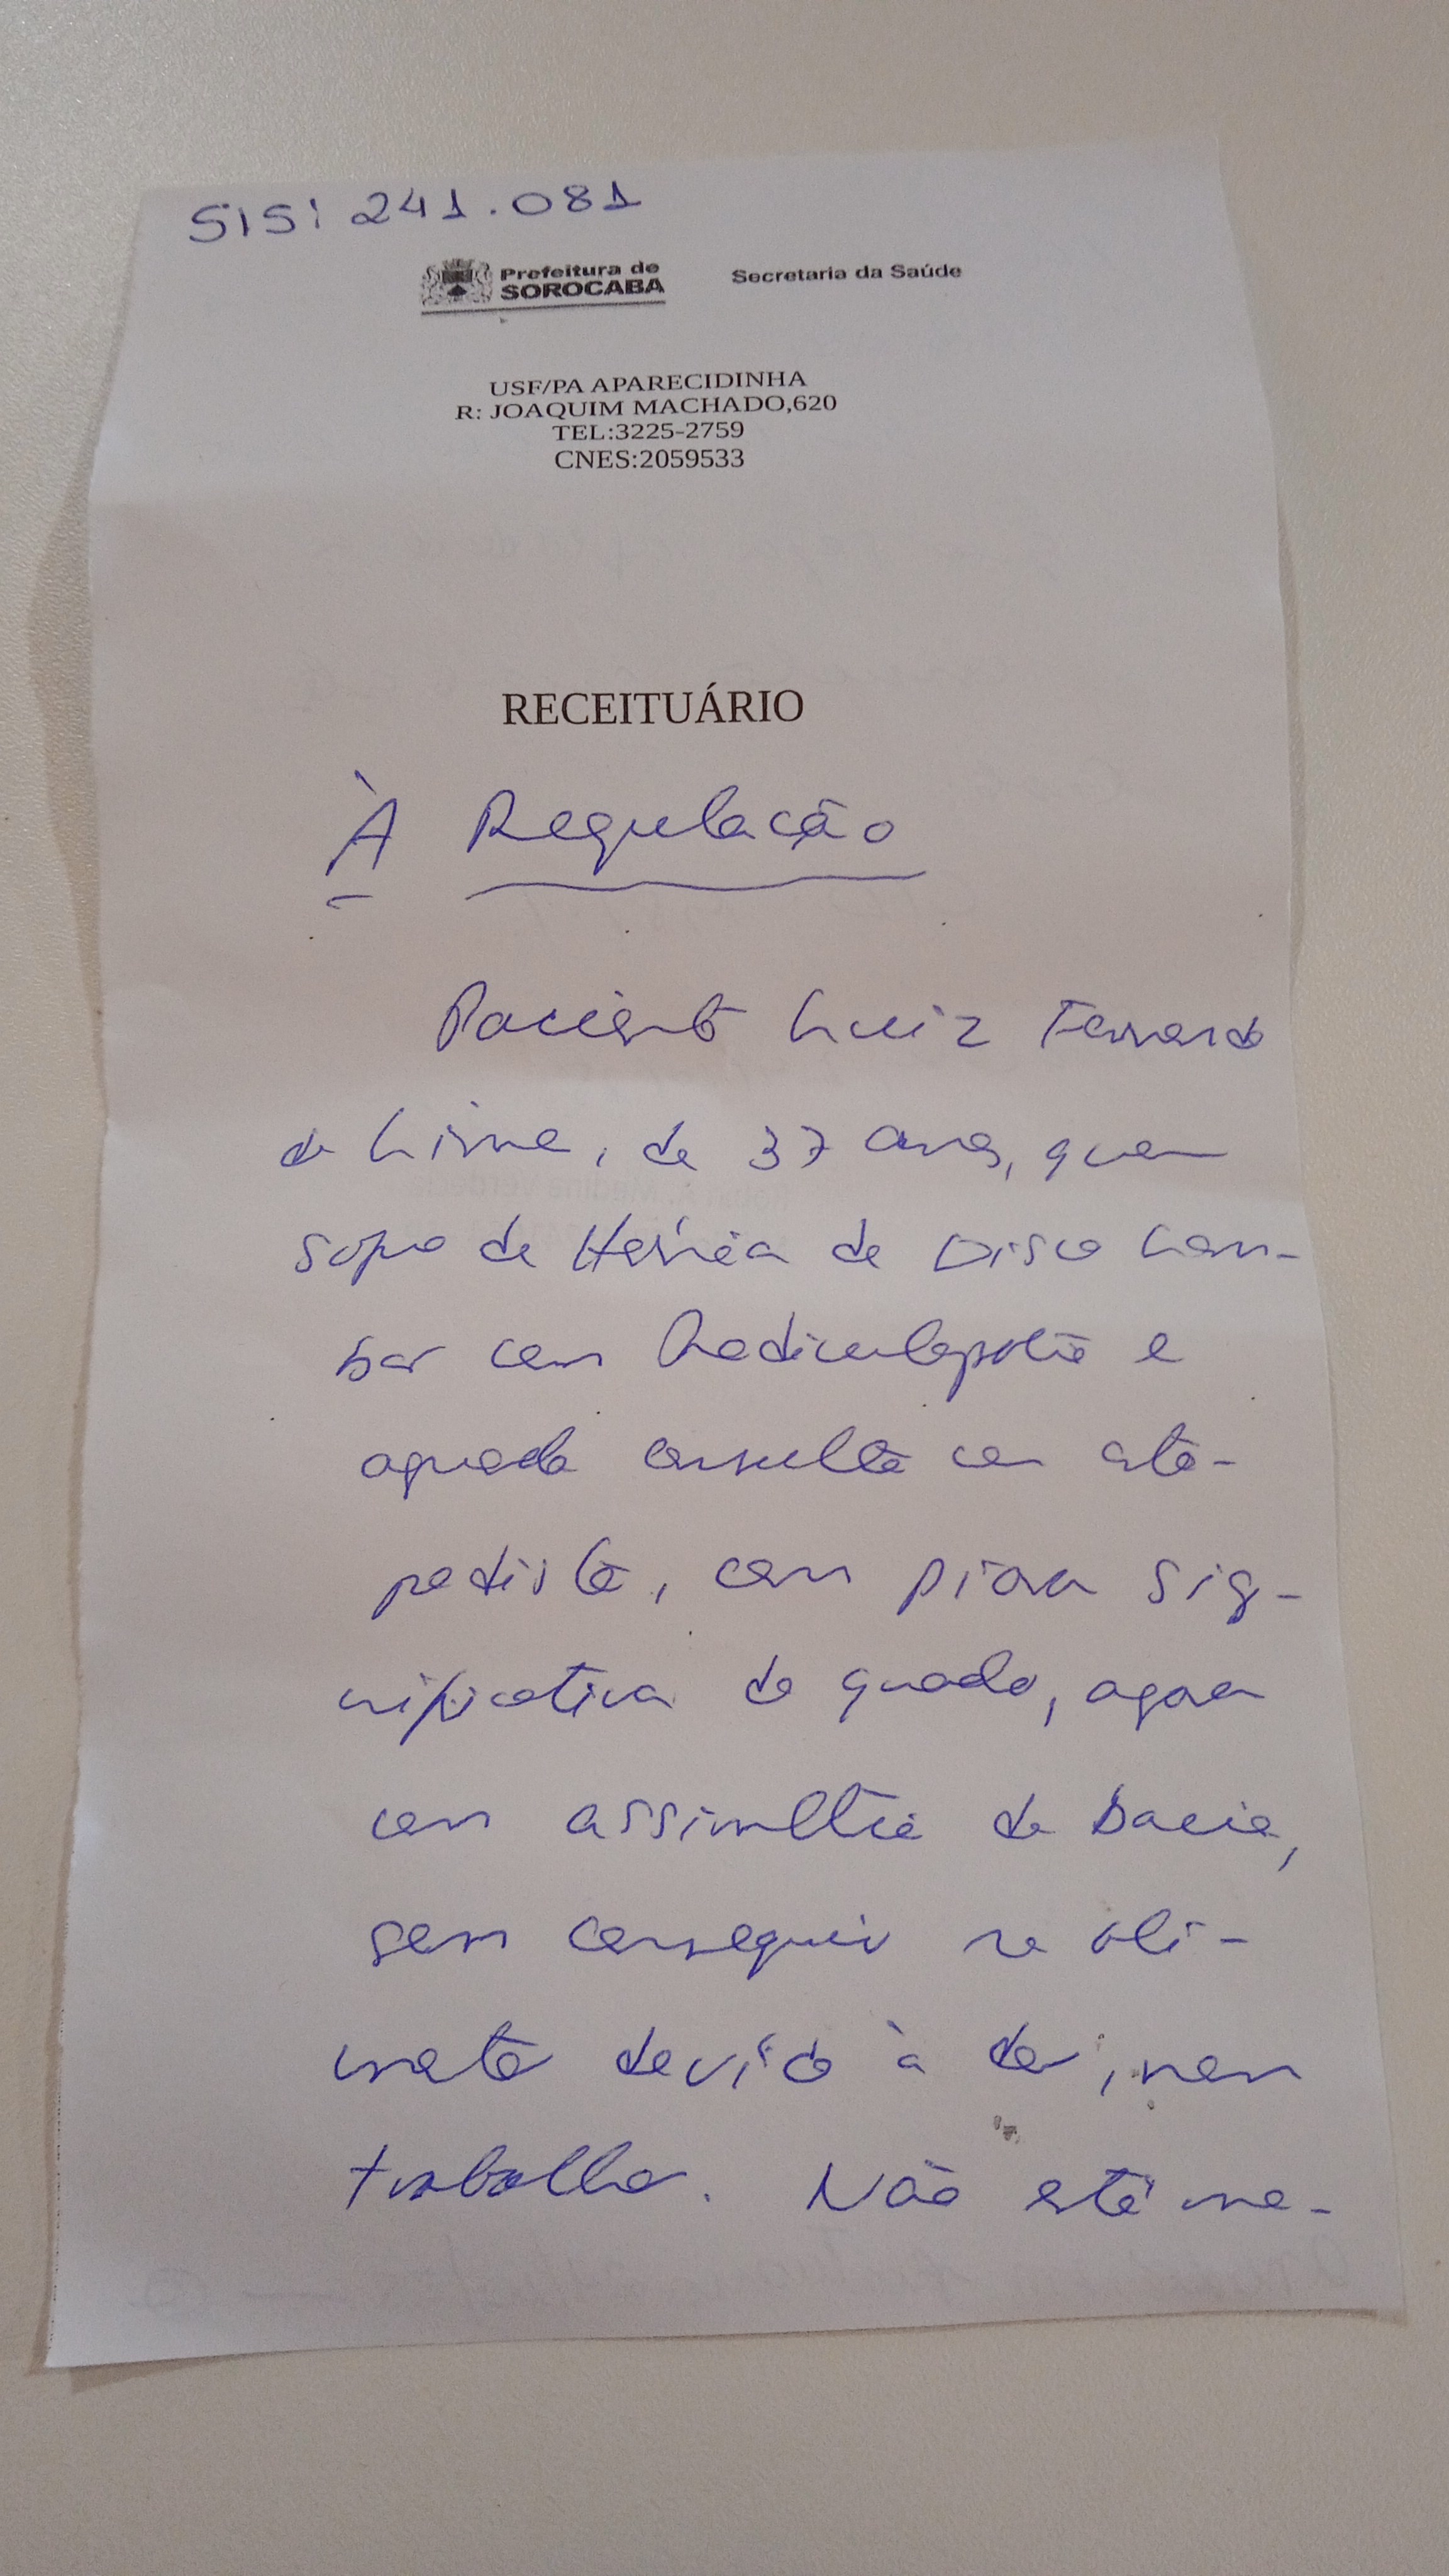 SIS: 241.081
Prefeitura de
SOROCABA
Secretaria da Saúde
USF/PA APARECIDINHA
R: JOAQUIM MACHADO,620
TEL:3225-2759
CNES:2059533
RECEITUÁRIO
À Regulação
Paciente Luiz Fernando
de Lima, de 37 anos, quem
sofre de Hérnia de Disco Lom-
bar com Radiculopatia e
aguarda consulta com orto-
pedista, com piora sig-
nificativa do quadro, agora
com assimetria de bacia,
sem conseguir se ali-
mentar devido à dor, nem
trabalhar. Não está me-